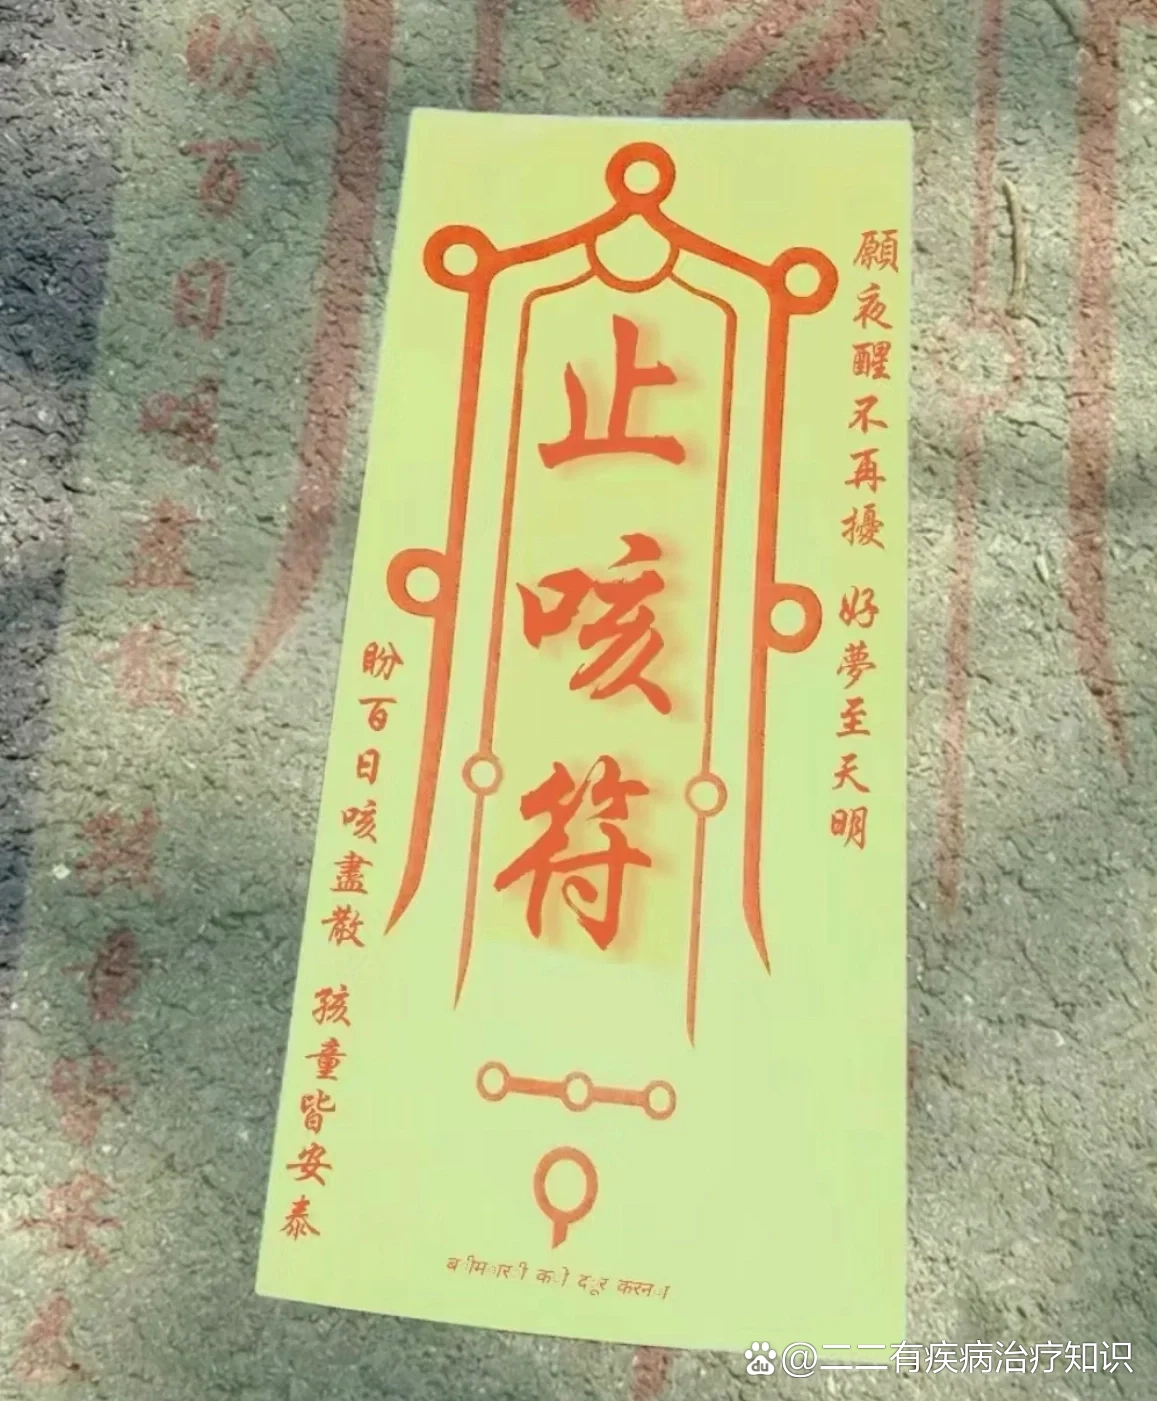 止咳符
願夜醒不再擾 好夢至天明
盼百日咳盡散 孩童皆安泰
बीमारी को दूर करना
@二二有疾病治疗知识